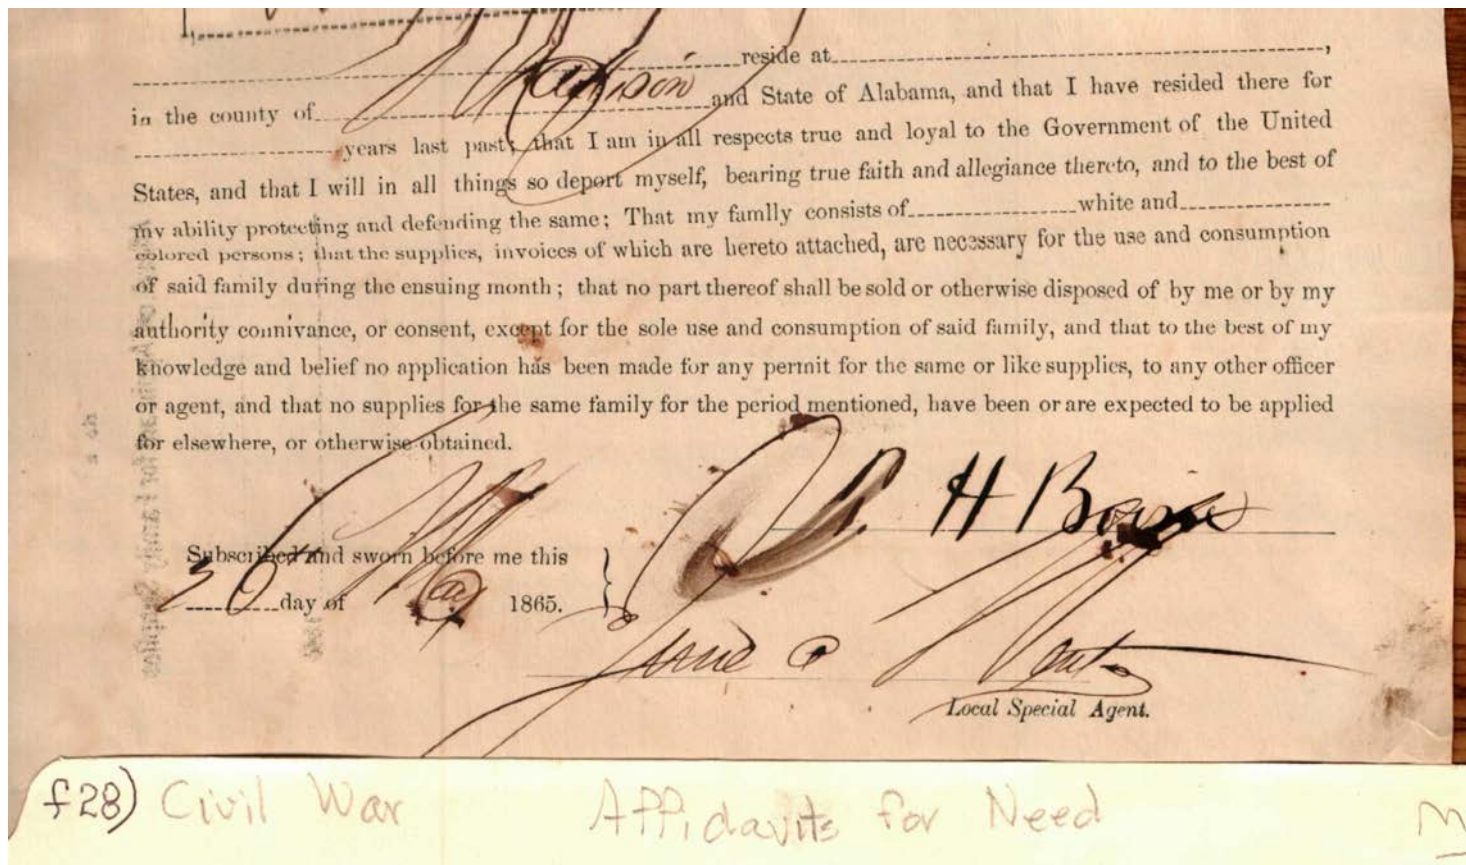 reside at,
in the county of Madison and State of Alabama, and that I have resided there for
years last past; that I am in all respects true and loyal to the Government of the United
States, and that I will in all things so deport myself, bearing true faith and allegiance thereto, and to the best of
my ability protecting and defending the same; That my famlly consists of white and
colored persons; that the supplies, invoices of which are hereto attached, are necessary for the use and consumption
of said family during the ensuing month; that no part thereof shall be sold or otherwise disposed of by me or by my
authority connivance, or consent, except for the sole use and consumption of said family, and that to the best of my
knowledge and belief no application has been made for any permit for the same or like supplies, to any other officer
or agent, and that no supplies for the same family for the period mentioned, have been or are expected to be applied
for elsewhere, or otherwise obtained.
P. H
Subscribed and sworn before me this
day of May 1865.
Local Special Agent.
f28) Civil War Affidavits for Need M